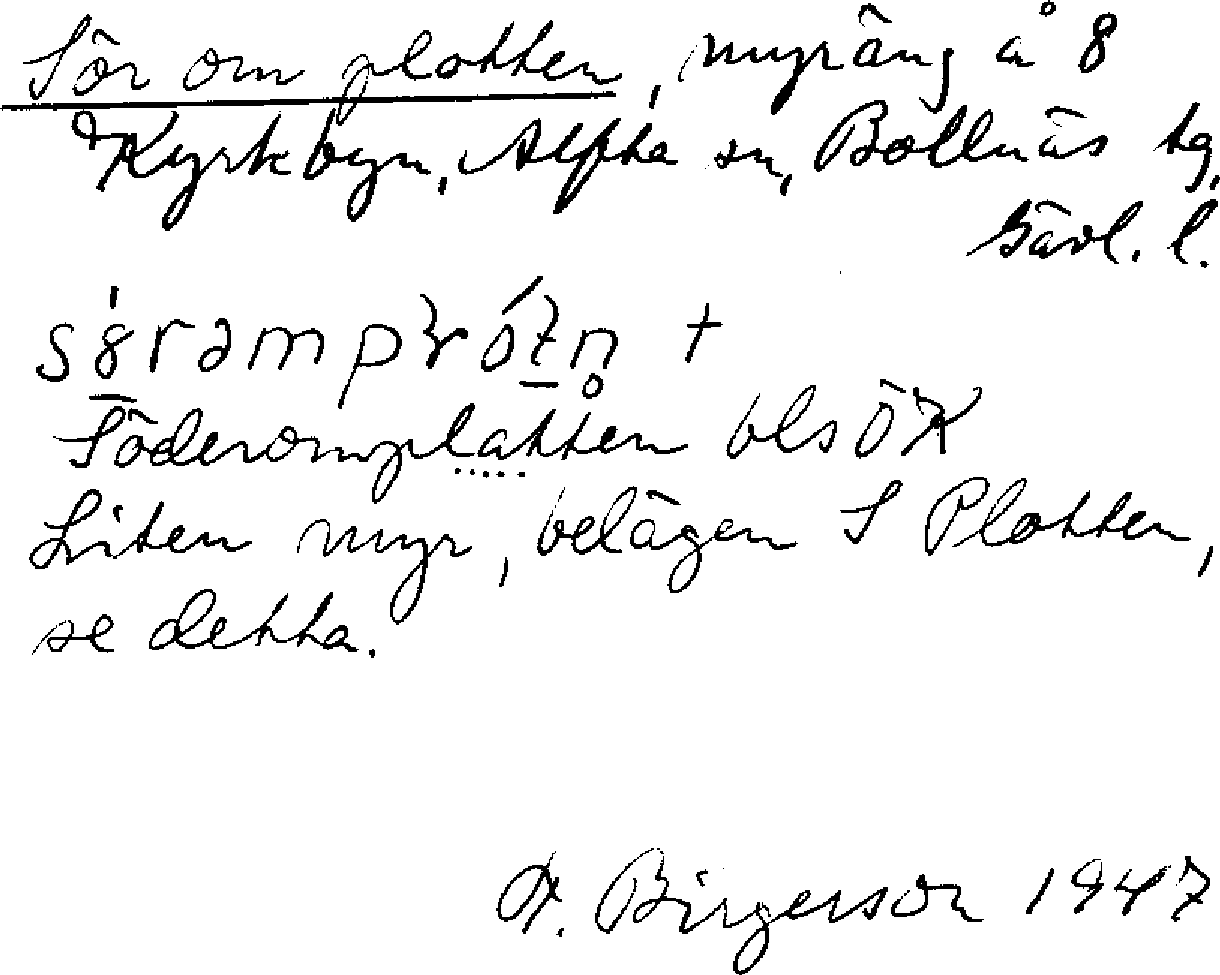 Sör om plotten, myräng å 8
Kyrkbyn, Alfta sn, Bollnäs tg,
Gävl. l.
Söderomplatten bls ÖK
Liten myr, belägen S Plotten,
se detta.
A. Birgerson 1947